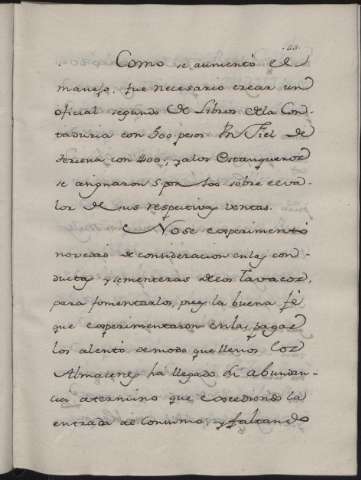 Como se aumentó el
manejo, fue necesario crear un
oficial segundo de Libros dela Con-
taduria con 500 pesos Un Fiel de
terzena con 400, yalos Estanqueros
se asignaron 5 por 100 sobre el va-
lor de sus respectivas ventas.
Nose experimentó
novedad de consideracion enlas con-
ductas y sementeras delos tavacos,
para fomentarlos, pues la buena fé
que experimentaron enlas pagas
los alentó demodo, que llenos los
Almacenes há llegado su abundan-
cia atermino que excediendo la
entrada al consumo, y faltando